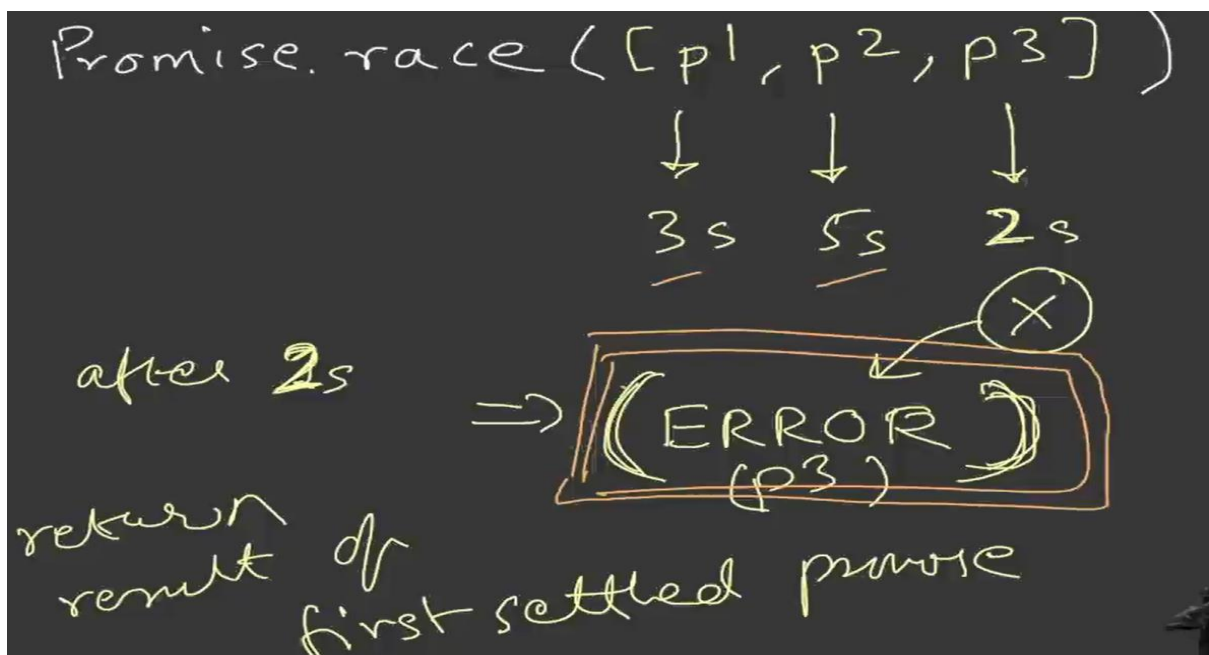 Promise.race([p1, p2, p3])
3s 5s 2s
X
after 2s
=> (ERROR)
(p3)
return
result of
first settled promise